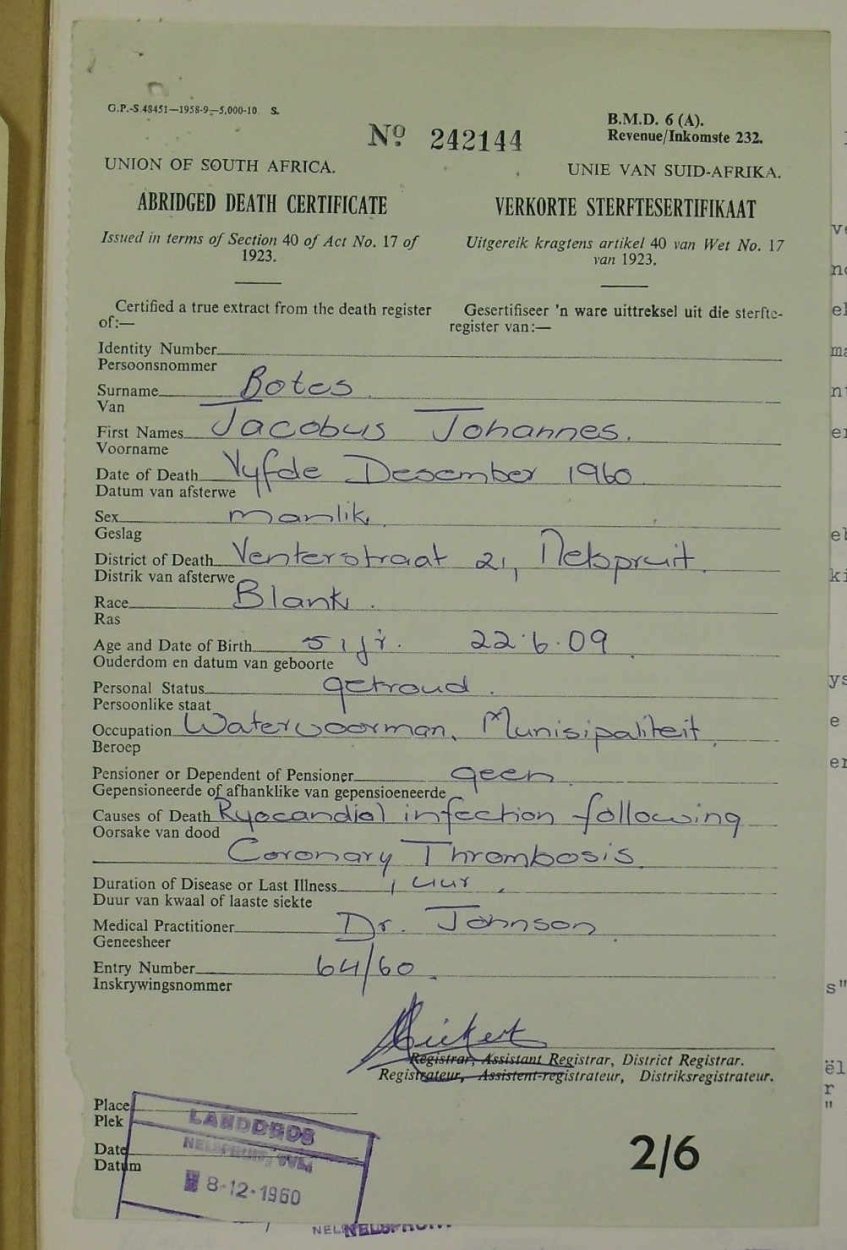 G.P.-S.48451—1958-9—5,000-10 S.
B.M.D. 6 (A).
Nº 242144
Revenue/Inkomste 232.
UNION OF SOUTH AFRICA.
UNIE VAN SUID-AFRIKA.
ABRIDGED DEATH CERTIFICATE
VERKORTE STERFTESERTIFIKAAT
Issued in terms of Section 40 of Act No. 17 of
1923.
Uitgereik kragtens artikel 40 van Wet No. 17
van 1923.
Certified a true extract from the death register
of:—
Gesertifiseer 'n ware uittreksel uit die sterfte-
register van:—
Identity Number
Persoonsnommer
Surname Botes
Van
First Names Jacobus Johannes.
Voorname
Date of Death Vyfde Desember 1960
Datum van afsterwe
Sex manlik
Geslag
District of Death Venterstraat 21, Nelspruit.
Distrik van afsterwe
Race Blank.
Ras
Age and Date of Birth 51 jr. 22.6.09
Ouderdom en datum van geboorte
Personal Status getroud.
Persoonlike staat
Occupation Watervoorman, Munisipaliteit.
Beroep
Pensioner or Dependent of Pensioner geen
Gepensioneerde of afhanklike van gepensioeneerde
Causes of Death Ryocandial infection following
Oorsake van dood
Coronary Thrombosis
Duration of Disease or Last Illness 1 uur,
Duur van kwaal of laaste siekte
Medical Practitioner Dr. Johnson
Geneesheer
Entry Number 64/60
Inskrywingsnommer
Registrar, Assistant Registrar, District Registrar.
Registrateur, Assistent-registrateur, Distriksregistrateur.
Place
Plek
LANDDROS
NELSPRUIT, TVL
Date
Datum
8-12-1960
2/6